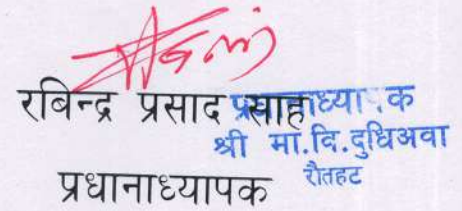 रबिन्द्र प्रसाद साह
प्रधानाध्यापक
श्री मा.वि.दुधिअवा
रौतहट
प्रधानाध्यापक